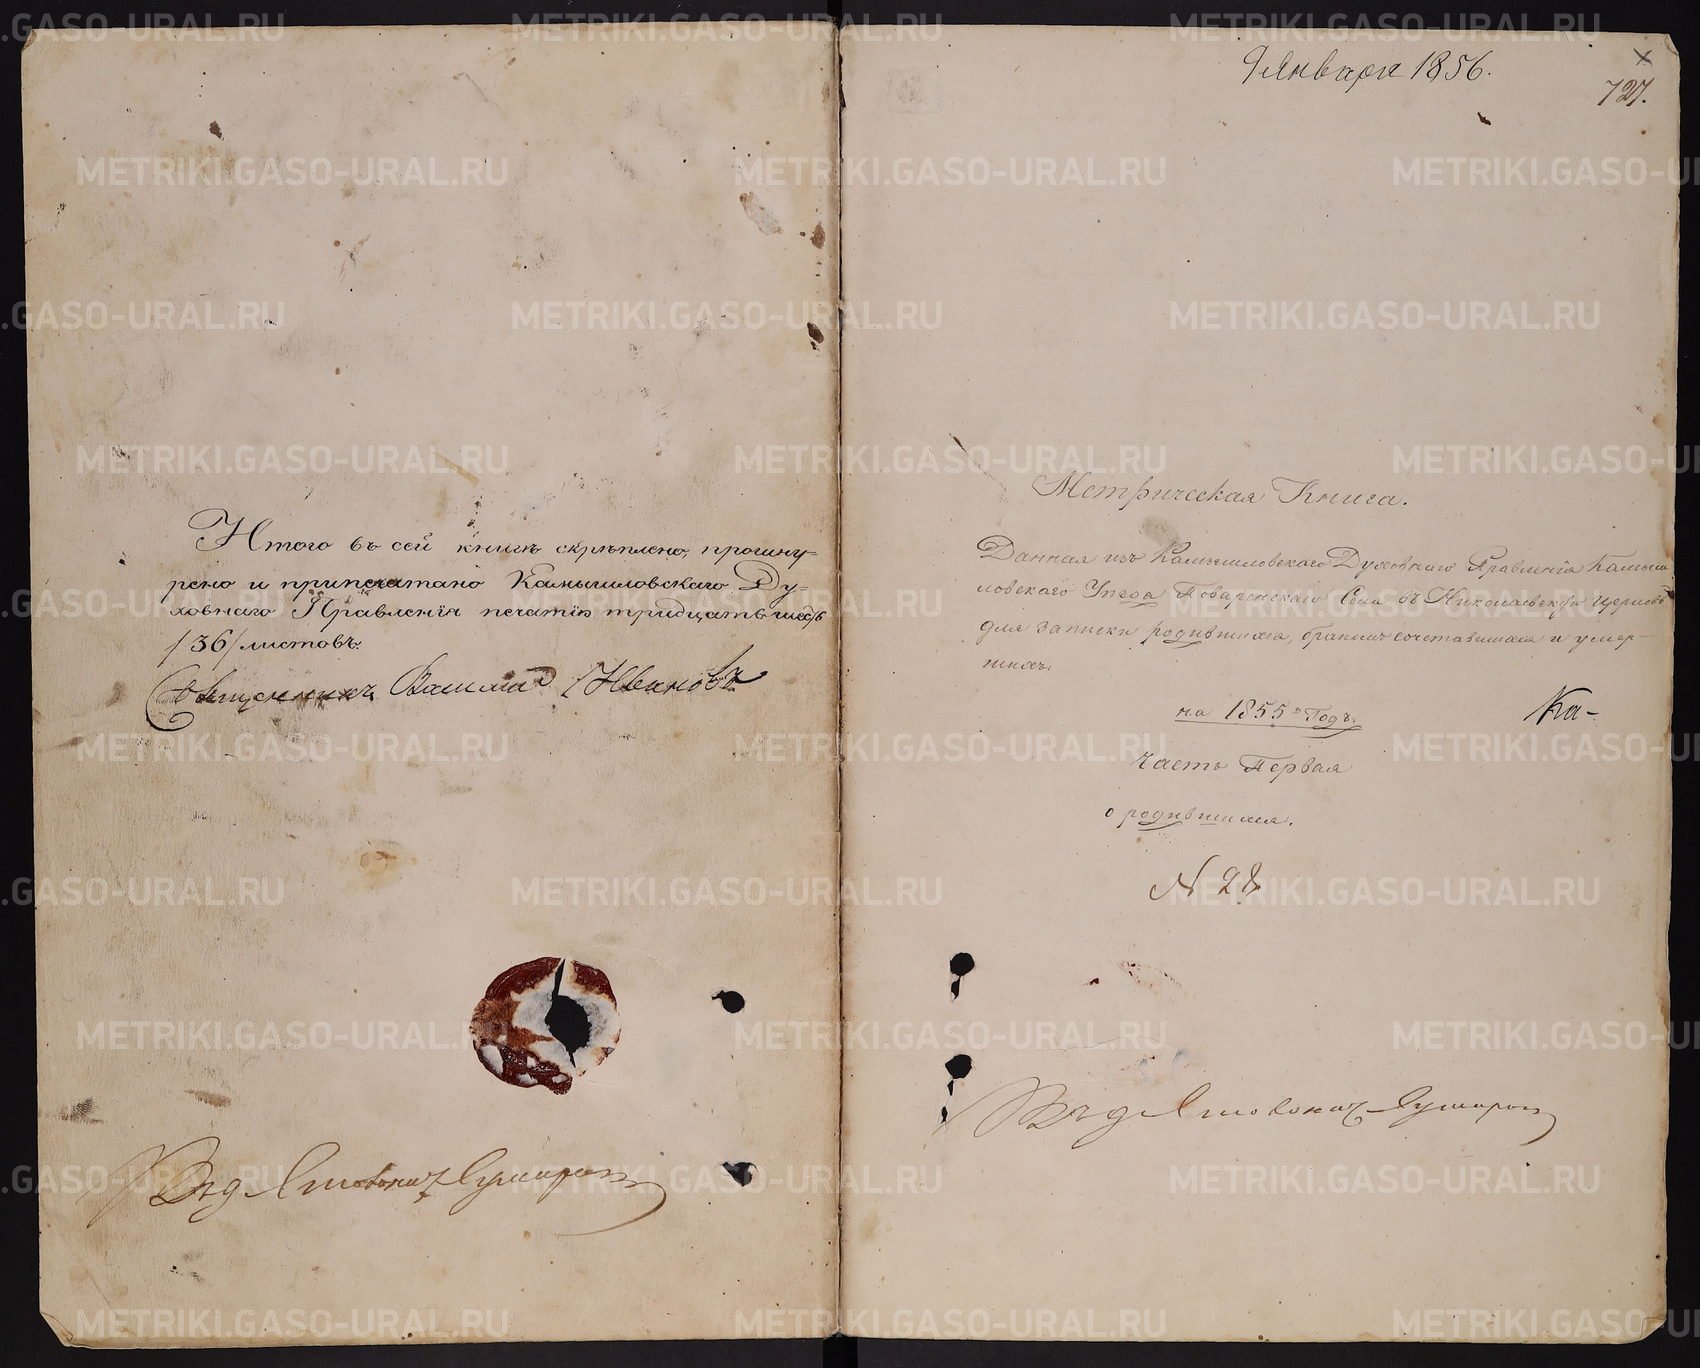 Итого въ сей книгѣ скрѣплено, прошну-
рено и припечатано Камышловскаго Ду-
ховнаго Правленія печатію тридцать шесть
/36/ листовъ.
Священникъ Ивановъ
9 Января 1856.
727.
Метрическая Книга.
Данная изъ Камышловскаго Духовнаго Правленія Камыш
ловскаго Уѣзда Поваренскаго Села въ Николаевскую Церковь
для записки родившихся, бракомъ сочетавшихся и умер-
шихъ.
на 1855й Годъ.
Ка-
Часть Первая
о родившихся.
N 28
METRIKI.GASO-URAL.RU